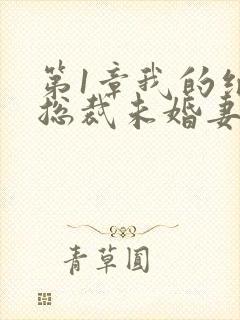 第1章我的
总裁未婚妻
青草圆